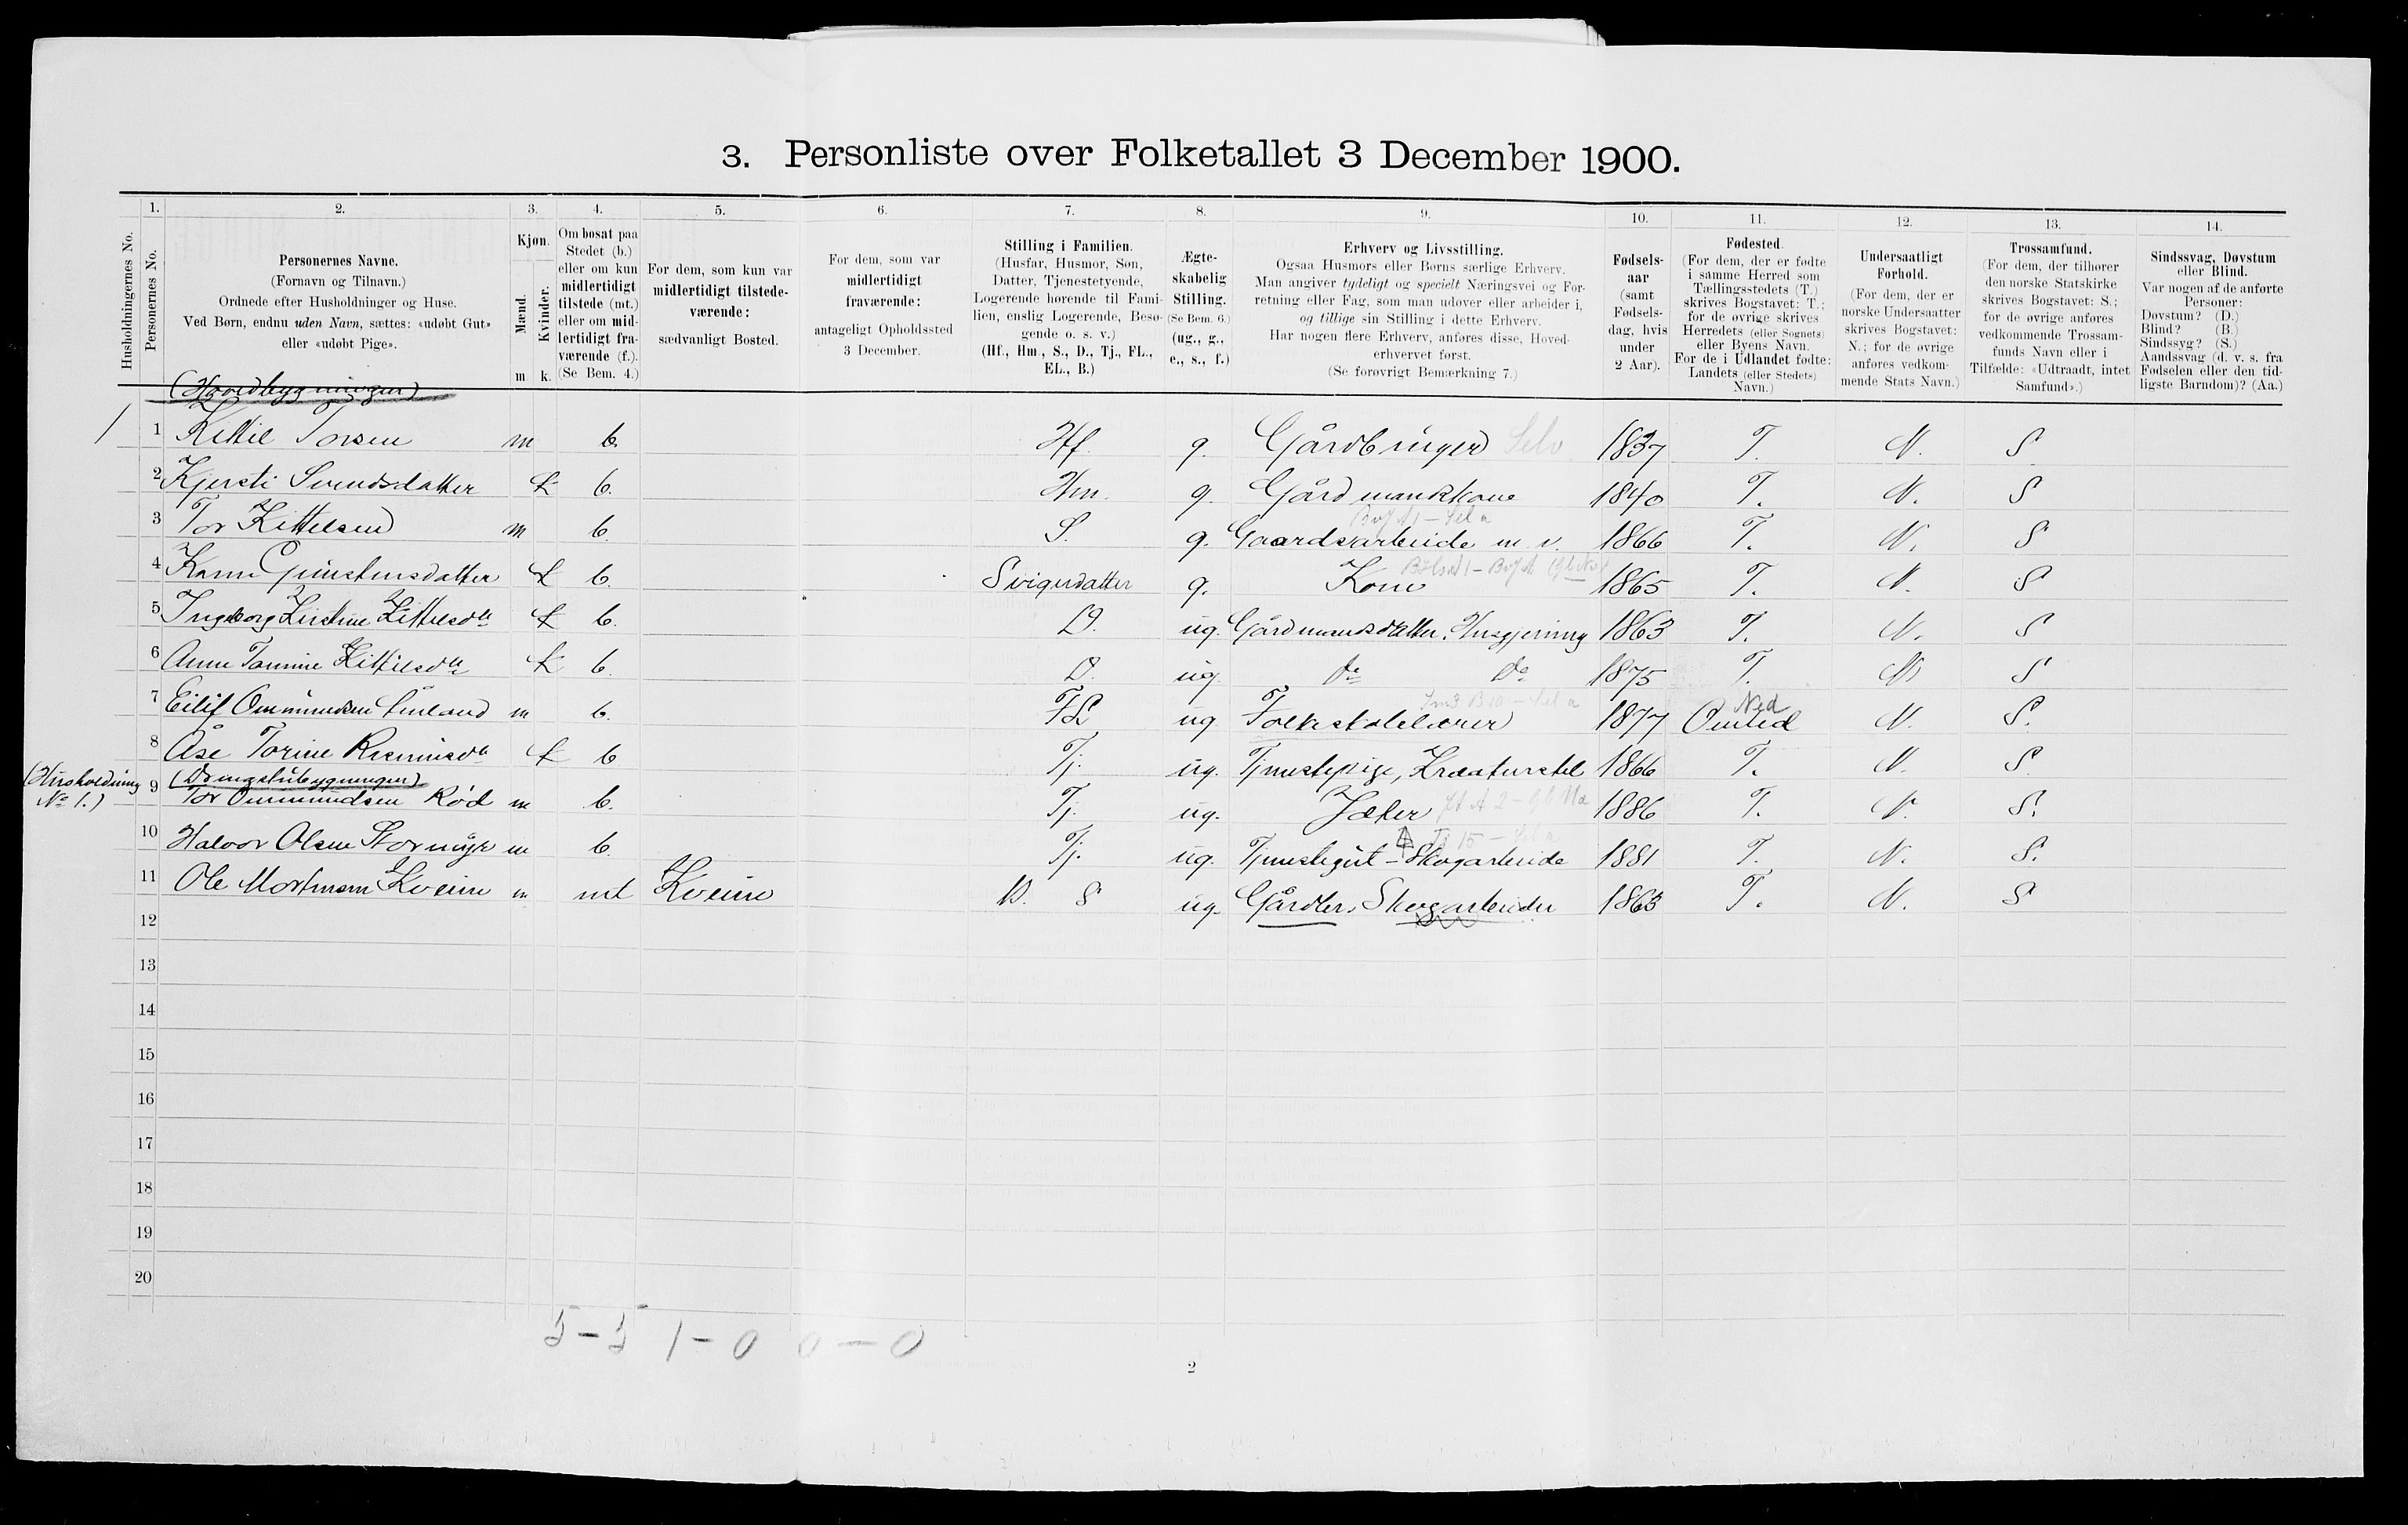 3. Personliste over Folketallet 3 December 1900.
Husholdningernes No.
1. Personernes No.
2. Personernes Navne.
(Fornavn og Tilnavn.)
Ordnede efter Husholdninger og Huse.
Ved Børn, endnu uden Navn, sættes: «udøbt Gut»
eller «udøbt Pige».
3. Kjøn.
Mænd. Kvinder.
m. k.
4. Om bosat paa
Stedet (b.)
eller om kun
midlertidigt
tilstede (mt.)
eller om mid-
lertidigt fra-
værende (f.).
(Se Bem. 4.)
5. For dem, som kun var
midlertidigt tilstede-
værende:
sædvanligt Bosted.
6. For dem, som var
midlertidigt
fraværende:
antageligt Opholdssted
3 December.
7. Stilling i Familien.
(Husfar, Husmor, Søn,
Datter, Tjenestetyende,
Logerende hørende til Fami-
lien, enslig Logerende, Besø-
gende o. s. v.)
(Hf., Hm., S., D., Tj., FL.,
EL., B.)
8. Ægte-
skabelig
Stilling.
(Se Bem. 6.)
(ug., g.,
e., s., f.)
9. Erhverv og Livsstilling.
Ogsaa Husmors eller Børns særlige Erhverv.
Man angiver tydeligt og specielt Næringsvei og For-
retning eller Fag, som man udøver eller arbeider i,
og tillige sin Stilling i dette Erhverv.
Har nogen flere Erhverv, anføres disse, Hoved-
erhvervet først.
(Se forøvrigt Bemærkning 7.)
10. Fødsels-
aar
(samt
Fødsels-
dag, hvis
under
2 Aar).
11. Fødested.
(For dem, der er fødte
i samme Herred som
Tællingsstedets (T.)
skrives Bogstavet: T.;
for de øvrige skrives
Herredets (eller Sognets)
eller Byens Navn.
For de i Udlandet fødte:
Landets (eller Stedets)
Navn.)
12. Undersaatligt
Forhold.
(For dem, der er
norske Undersaatter
skrives Bogstavet:
N.; for de øvrige
anføres vedkom-
mende Stats Navn.)
13. Trossamfund.
(For dem, der tilhører
den norske Statskirke
skrives Bogstavet: S.;
for de øvrige anføres
vedkommende Trossam-
funds Navn eller i
Tilfælde: «Udtraadt, intet
Samfund».)
14. Sindssvag, Døvstum
eller Blind.
Var nogen af de anførte
Personer:
Døvstum? (D.)
Blind? (B.)
Sindssyg? (S.)
Aandssvag (d. v. s. fra
Fødselen eller den tid-
ligste Barndom)? (Aa.)
(Hovedbygningen)
1 1 Kittil Torsen m b. Hf. g. Gårdbruger Selv 1837 T. N. S
2 Kjersti Svendsdatter k b. Hm. g. Gårdmandskone 1840 T. N. S
3 Tor Kittelsen m b. S. g. Gaardsarbeide m. v. 1866 T. N. S
4 Karen Gunstensdatter k b. Svigerdatter g. Kone 1865 T. N. S
5 Ingeborg Kirstine Kittelsdtr k b. D. ug. Gårdmandsdatter. Husgjerning 1863 T. N. S
6 Anne Tomine Kittilsdtr k b. D. ug. do do 1875 T. N S
7 Eilif Ommundsen m b. FL ug Folkeskolelærer 1877 Omlid N. S.
Ned
8 Åse Torine k b Tj. ug. Tjenestepige, Kreaturstel 1866 T. N. S
(Husholdning
No 1.)
(Drengestubygningen)
9 Tor Ommundsen Rød m b. Tj. ug. 1886 T. N. S.
10 Halvor Olsen Stormyr m b. Tj. ug. Tjenestegut - Skogarbeide 1881 T. N. S.
11 Ole Mortensen Kveim m mt Kveim B. S ug. Gårdbr, Skogarbeider 1863 T. N. S
12
13
14
15
16
17
18
19
20
5-5 1-0 0-0
2